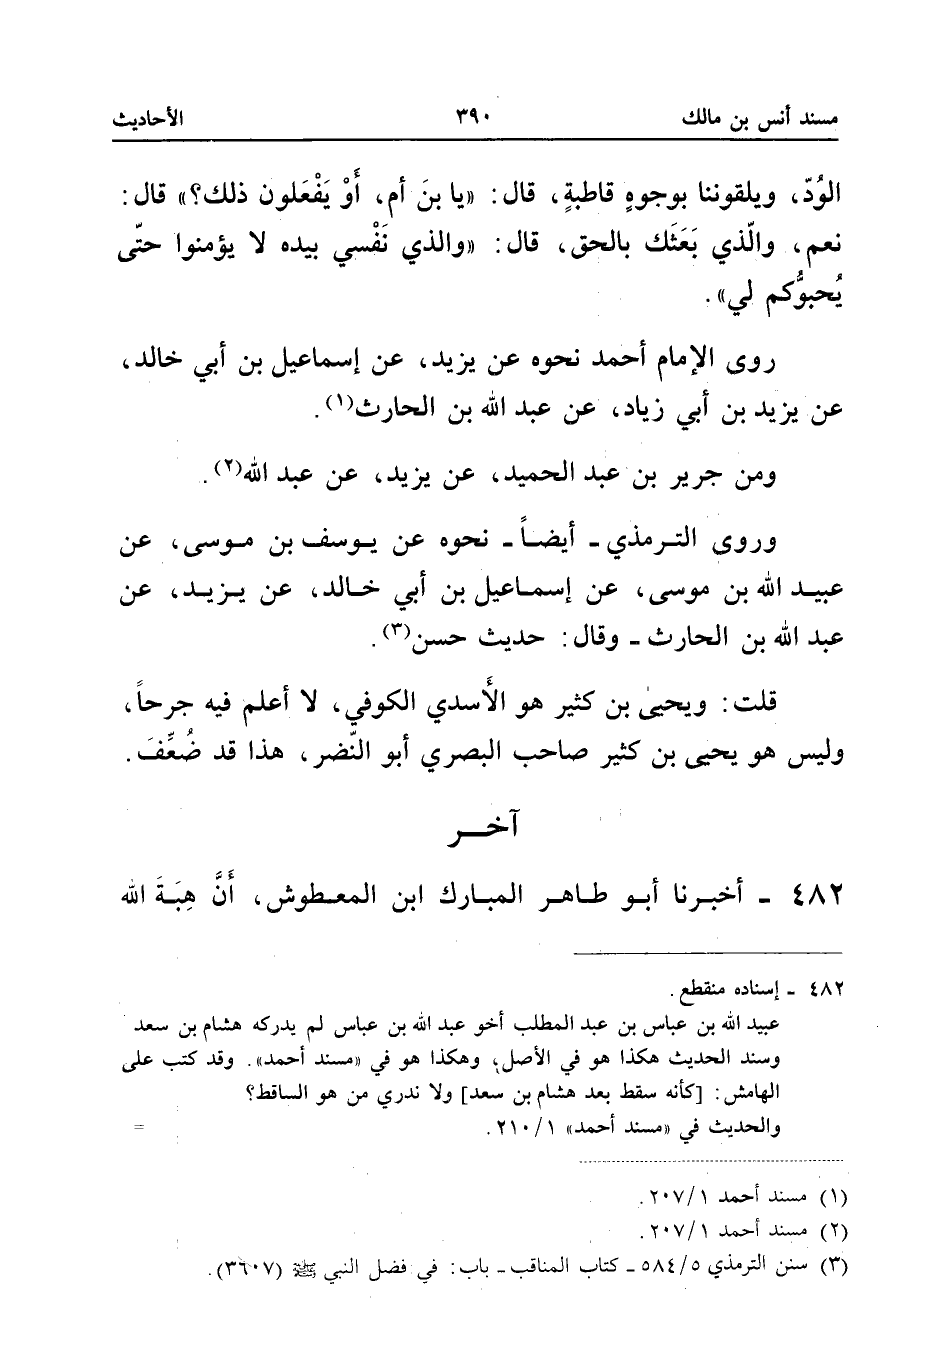 مسند أنس بن مالك ٣٩٠ الأحاديث
الوُدّ، ويلقوننا بوجوهٍ قاطبةٍ، قال: «يا بنَ أم، أَوْ يَفْعَلون ذلك؟» قال:
نعم، والّذي بَعَثَك بالحق، قال: «والذي نَفْسي بيده لا يؤمنوا حتّى
يُحبوُّكم لي».
روى الإمام أحمد نحوه عن يزيد، عن إسماعيل بن أبي خالد،
عن يزيد بن أبي زياد، عن عبد الله بن الحارث(١).
ومن جرير بن عبد الحميد، عن يزيد، عن عبد الله(٢).
وروى الترمذي - أيضاً - نحوه عن يوسف بن موسى، عن
عبيد الله بن موسى، عن إسماعيل بن أبي خالد، عن يزيد، عن
عبد الله بن الحارث - وقال: حديث حسن(٣).
قلت: ويحيىٰ بن كثير هو الأَسدي الكوفي، لا أعلم فيه جرحاً،
وليس هو يحيى بن كثير صاحب البصري أبو النّضر، هذا قد ضُعِّفَ.
آخر
٤٨٢ - أخبرنا أبو طاهر المبارك ابن المعطوش، أَنَّ هِبَةَ الله
٤٨٢ - إسناده منقطع.
عبيد الله بن عباس بن عبد المطلب أخو عبد الله بن عباس لم يدركه هشام بن سعد
وسند الحديث هكذا هو في الأصل، وهكذا هو في «مسند أحمد». وقد كتب على
الهامش: [كأنه سقط بعد هشام بن سعد] ولا ندري من هو الساقط؟
والحديث في «مسند أحمد» ٢١٠/١. =
(١) مسند أحمد ٢٠٧/١.
(٢) مسند أحمد ٢٠٧/١.
(٣) سنن الترمذي ٥٨٤/٥ - كتاب المناقب - باب: في فضل النبي ﷺ (٣٦٠٧).